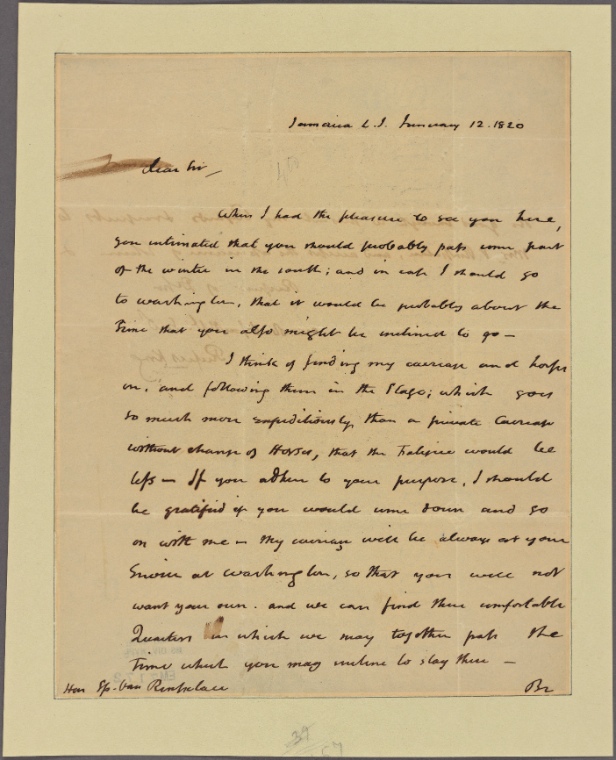 Jamaica L. I. January 12. 1820
Dear Sir,
When I had the pleasure to see you here,
you intimated that you should probably pass some part
of the winter in the south; and in case I should go
to Washington, that it would be probably about the
time that you also might be inclined to go—
I think of sending my carriage and horses
on, and following them in the Stage; which goes
so much more expeditiously, than a private Carriage
without change of Horses, that the Fatigue would be
less— If you adhere to your purpose, I should
be gratified if you would come down and go
on with me— My carriage will be always at your
Service at Washington, so that you will not
want your own. and we can find there comfortable
Quarters in which we may together pass the
time which you may incline to stay there—
Hon Sp. Van Rensselaer
39
57